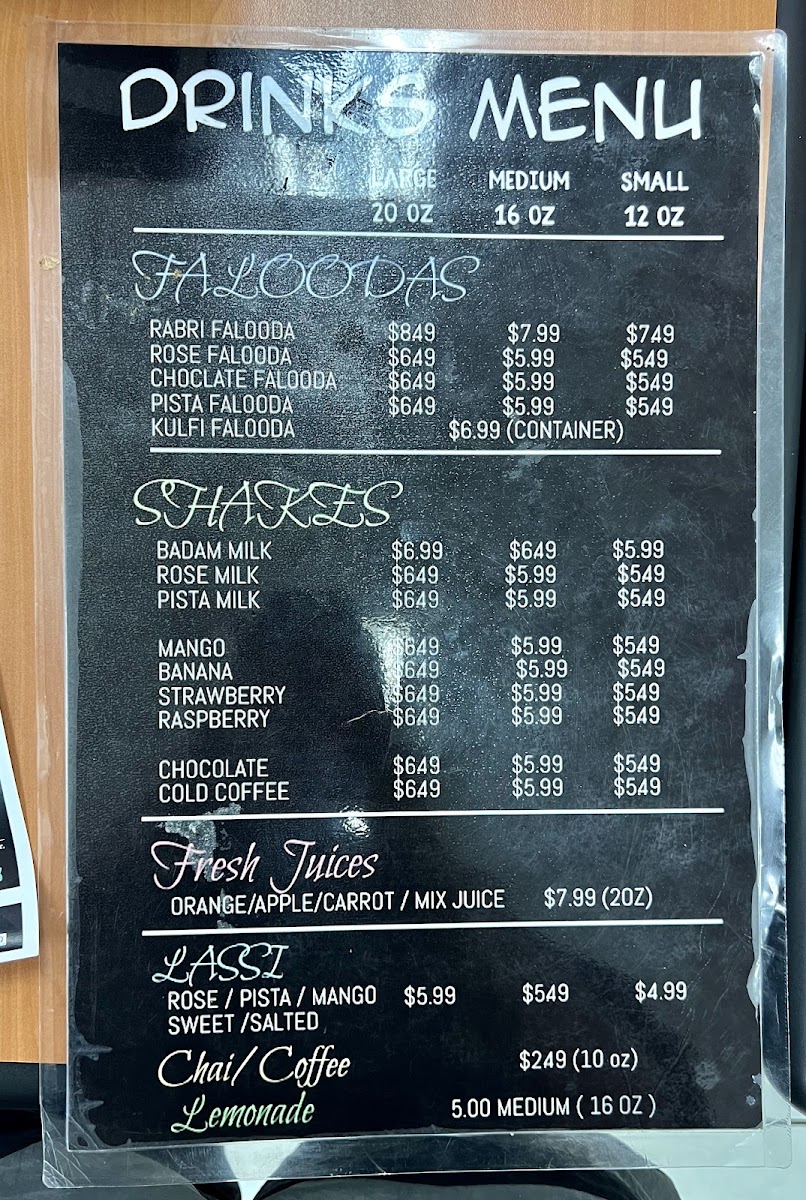 DRINKS MENU
LARGE MEDIUM SMALL
20 OZ 16 OZ 12 OZ
FALOODAS
RABRI FALOODA $8.49 $7.99 $7.49
ROSE FALOODA $6.49 $5.99 $5.49
CHOCLATE FALOODA $6.49 $5.99 $5.49
PISTA FALOODA $6.49 $5.99 $5.49
KULFI FALOODA $6.99 (CONTAINER)
SHAKES
BADAM MILK $6.99 $6.49 $5.99
ROSE MILK $6.49 $5.99 $5.49
PISTA MILK $6.49 $5.99 $5.49
MANGO $6.49 $5.99 $5.49
BANANA $6.49 $5.99 $5.49
STRAWBERRY $6.49 $5.99 $5.49
RASPBERRY $6.49 $5.99 $5.49
CHOCOLATE $6.49 $5.99 $5.49
COLD COFFEE $6.49 $5.99 $5.49
Fresh Juices
ORANGE/APPLE/CARROT / MIX JUICE $7.99 (20Z)
LASSI
ROSE / PISTA / MANGO $5.99 $5.49 $4.99
SWEET /SALTED
Chai/ Coffee $2.49 (10 oz)
Lemonade 5.00 MEDIUM ( 16 OZ )